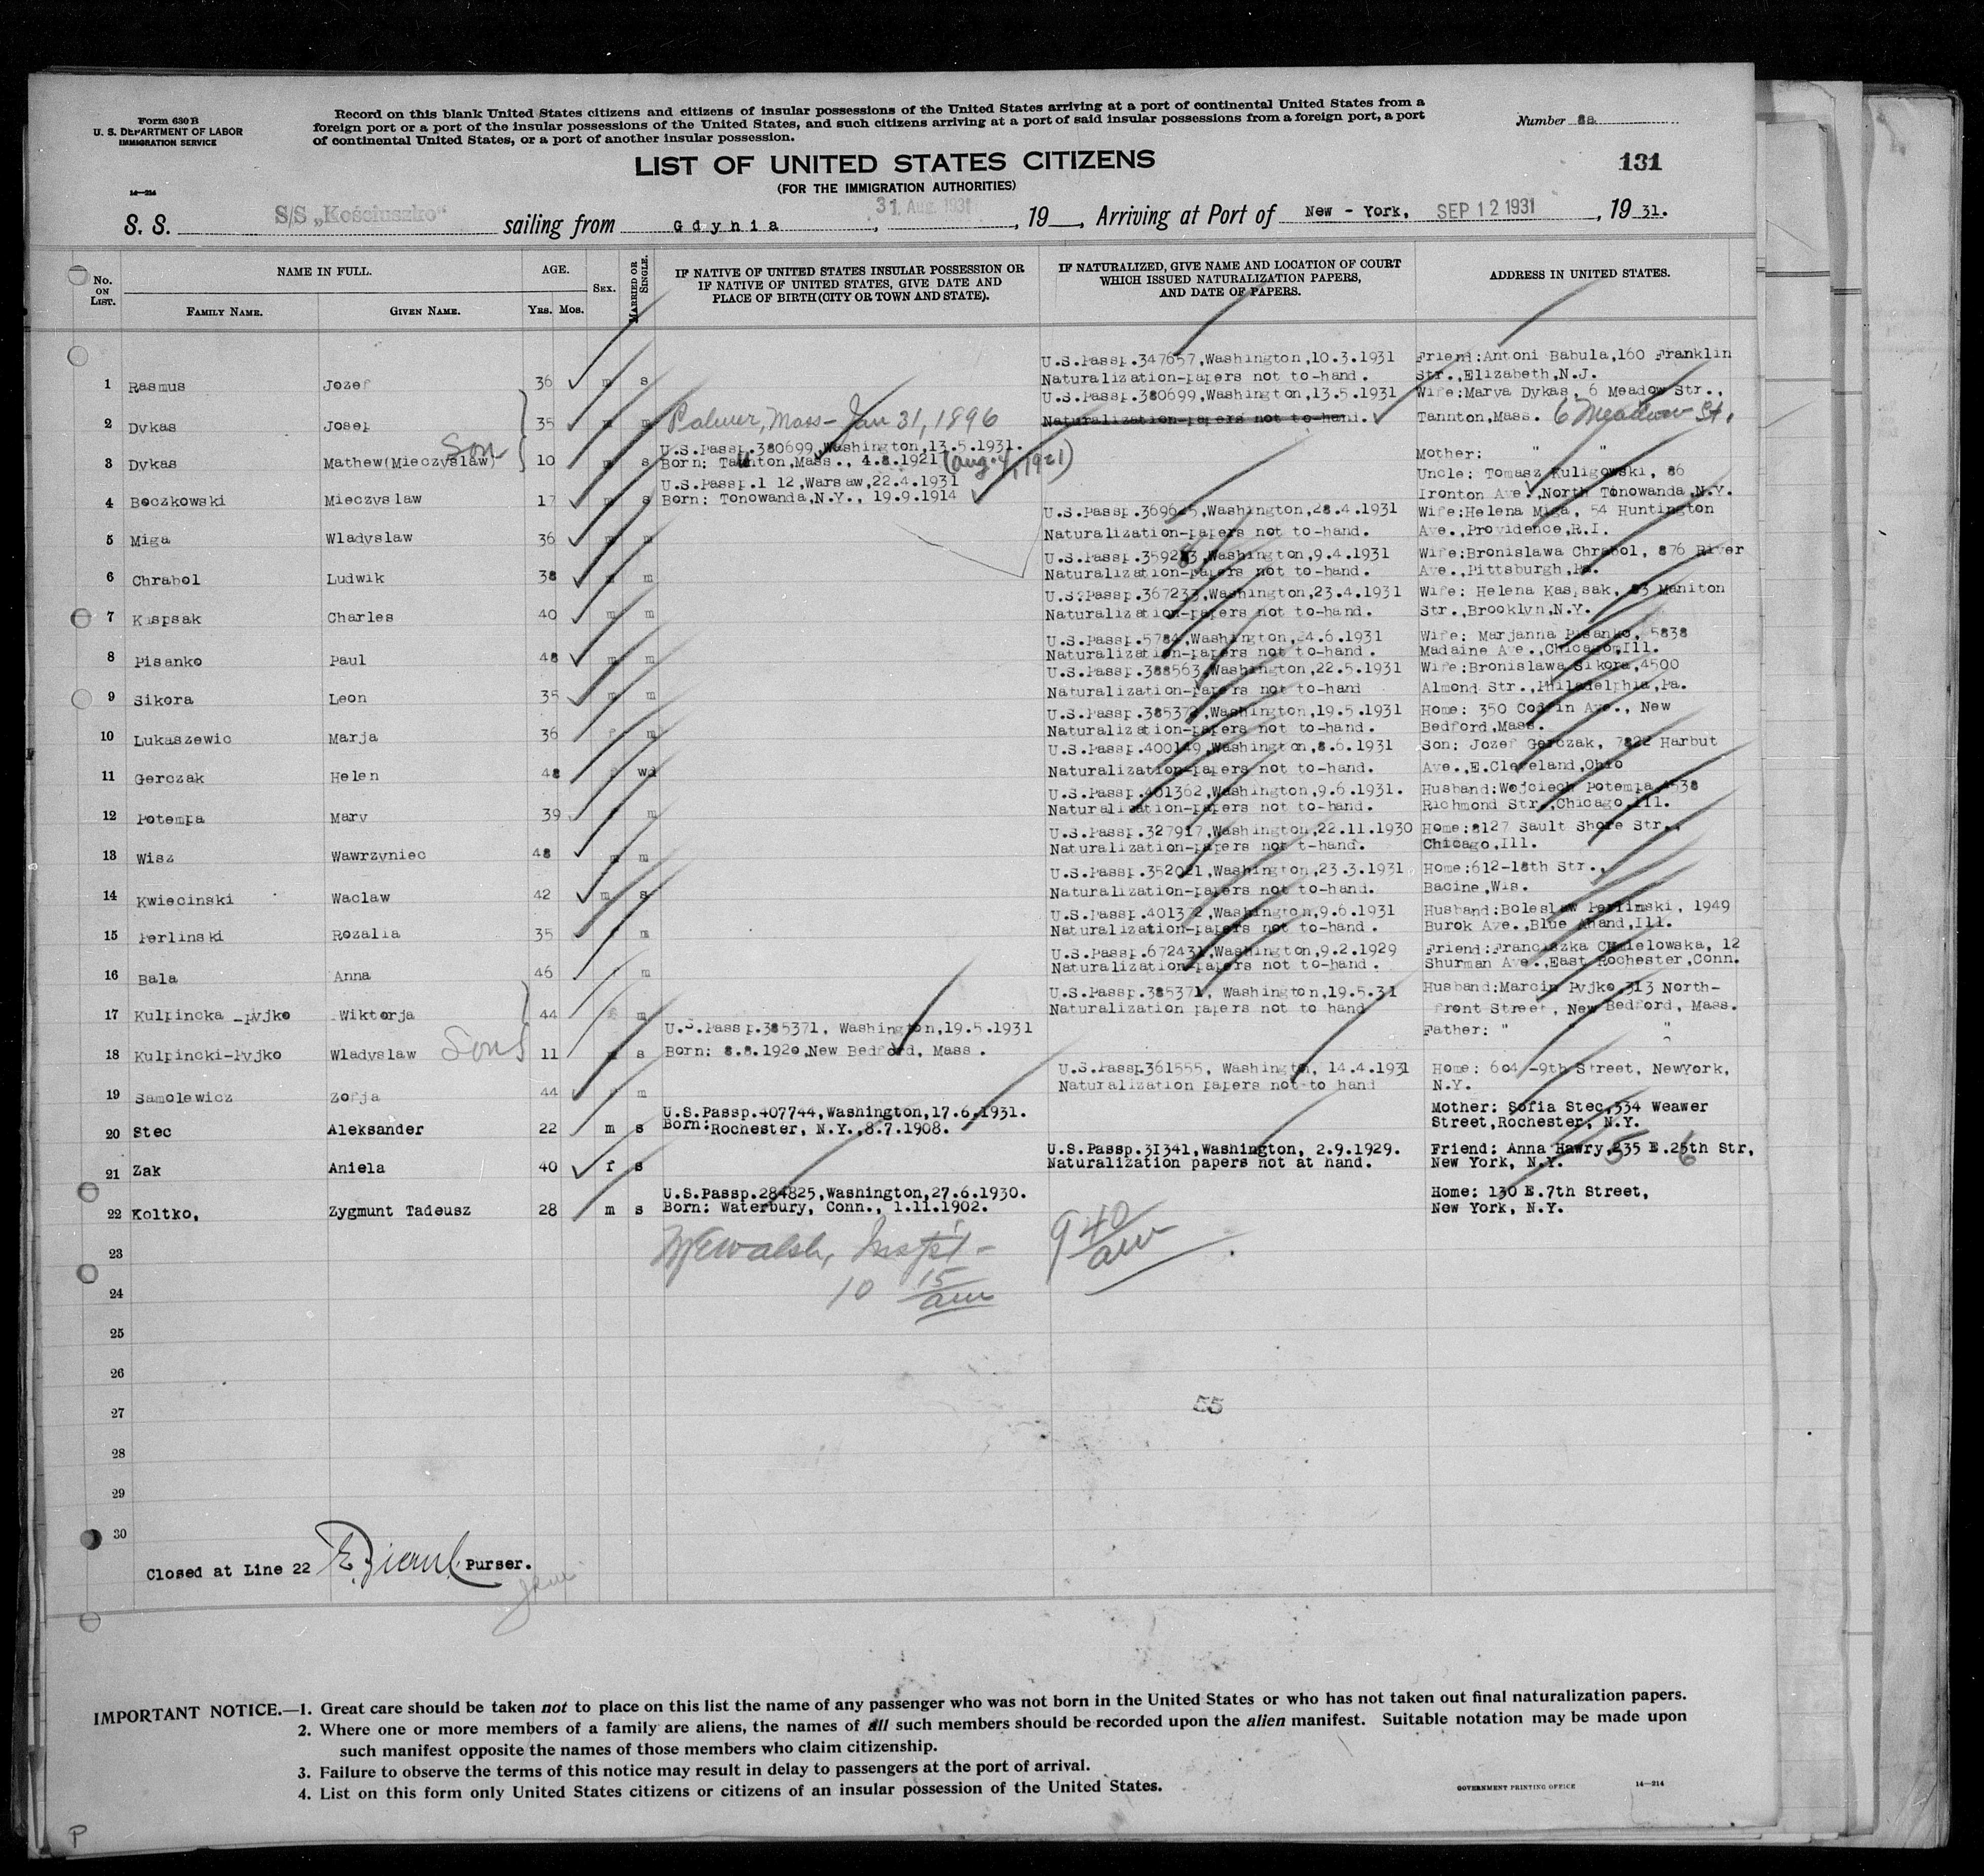 Form 630 B
U. S. DEPARTMENT OF LABOR
IMMIGRATION SERVICE
14—214
Record on this blank United States citizens and citizens of insular possessions of the United States arriving at a port of continental United States from a
foreign port or a port of the insular possessions of the United States, and such citizens arriving at a port of said insular possessions from a foreign port, a port
of continental United States, or a port of another insular possession.
Number 8a
LIST OF UNITED STATES CITIZENS
131
(FOR THE IMMIGRATION AUTHORITIES)
S. S. S/S „Kościuszko" sailing from Gdynia, 31. Aug. 1931, 19__, Arriving at Port of New - York, SEP 12 1931, 19 31.
No. ON LIST.
NAME IN FULL.
FAMILY NAME.
GIVEN NAME.
AGE.
YRS. MOS.
SEX.
MARRIED OR SINGLE.
IF NATIVE OF UNITED STATES INSULAR POSSESSION OR
IF NATIVE OF UNITED STATES, GIVE DATE AND
PLACE OF BIRTH (CITY OR TOWN AND STATE).
IF NATURALIZED, GIVE NAME AND LOCATION OF COURT
WHICH ISSUED NATURALIZATION PAPERS,
AND DATE OF PAPERS.
ADDRESS IN UNITED STATES.
U.S.Passp.347657,Washington,10.3.1931 Friend:Antoni Babula,160 Franklin
1 Rasmus Jozef 36 m s Naturalization-papers not to-hand. Str.,Elizabeth,N.J.
U.S.Passp.380699,Washington,13.5.1931 Wife:Marya Dykas, 6 Meadow Str.,
2 Dykas Josep 35 m m Palmer, Mass - Jan 31, 1896 Naturalization-papers not to-hand. Tannton,Mass. 6 Meadow St.
U.S.Passp.380699,Washington,13.5.1931. Mother: " "
3 Dykas Mathew(Mieczyslaw) Son 10 m s Born: Taunton,Mass., 4.8.1921 (Aug. 4, 1921)
U.S.Passp.1 12,Warsaw,22.4.1931 Uncle: Tomasz Kuligowski, 86
4 Boczkowski Mieczyslaw 17 m s Born: Tonowanda,N.Y., 19.9.1914 Ironton Ave.,North Tonowanda,N.Y.
U.S.Passp.369645,Washington,28.4.1931 Wife:Helena Miga, 54 Huntington
5 Miga Wladyslaw 36 m m Naturalization-papers not to-hand. Ave.,Providence,R.I.
U.S.Passp.359283,Washington,9.4.1931 Wife:Bronislawa Chrabol, 876 River
6 Chrabol Ludwik 38 m m Naturalization-papers not to-hand. Ave.,Pittsburgh,Pa.
U.S.Passp.367233,Washington,23.4.1931 Wife: Helena Kaspsak, 83 Maniton
7 Kaspsak Charles 40 m m Naturalization-papers not to-hand. Str.,Brooklyn,N.Y.
U.S.Passp.5784,Washington,24.6.1931 Wife: Marjanna Pisanko, 5838
8 Pisanko Paul 48 m m Naturalization-papers not to-hand. Madaine Ave.,Chicago,Ill.
U.S.Passp.388563,Washington,22.5.1931 Wife:Bronislawa Sikora,4500
9 Sikora Leon 35 m m Naturalization-papers not to-hand Almond Str.,Philadelphia,Pa.
U.S.Passp.385372,Washington,19.5.1931 Home: 350 Coffin Ave., New
10 Lukaszewic Marja 36 f m Naturalization-papers not to-hand. Bedford,Mass.
U.S.Passp.400149,Washington,8.6.1931 Son: Jozef Gerczak, 7822 Harbut
11 Gerczak Helen 48 f wd Naturalization-papers not to-hand. Ave.,E.Cleveland,Ohio
U.S.Passp.401362,Washington,9.6.1931. Husband:Wojciech Potempa,4538
12 Potempa Mary 39 f m Naturalization-papers not to-hand. Richmond Str.,Chicago,Ill.
U.S.Passp.327917,Washington,22.11.1930 Home:8127 Sault Shore Str.,
13 Wisz Wawrzyniec 48 m m Naturalization-papers not t-hand. Chicago,Ill.
U.S.Passp.352021,Washington,23.3.1931 Home:612-18th Str.,
14 Kwiecinski Waclaw 42 m s Naturalization-papers not to-hand. Bacine,Wis.
U.S.Passp.401372,Washington,9.6.1931 Husband:Boleslaw Perlinski, 1949
15 Perlinski Rozalia 35 f m Naturalization-papers not to-hand. Burok Ave.,Blue Ahand,Ill.
U.S.Passp.672431,Washington,9.2.1929 Friend:Franciszka Chmielowska, 12
16 Bala Anna 46 f m Naturalization-papers not to-hand. Shurman Ave.,East Rochester,Conn.
U.S.Passp.385371, Washington,19.5.31 Husband:Marcin Pyjko,313 North-
17 Kulpincka -pyjko Wiktorja 44 f m Naturalization papers not to hand front Street, New Bedford, Mass.
U.S.Passp.385371, Washington,19.5.1931 Father: " " "
18 Kulpincki-Pyjko Wladyslaw Son 11 m s Born: 8.8.1920,New Bedford, Mass.
U.S.Passp361555, Washington, 14.4.1931 Home: 604 -9th Street, NewYork,
19 Samolewicz Zofja 44 f m Naturalization papers not to hand N.Y.
U.S.Passp.407744,Washington,17.6.1931. Mother: Sofia Stec,534 Weawer
20 Stec Aleksander 22 m s Born:Rochester, N.Y.,8.7.1908. Street,Rochester, N.Y.
U.S.Passp.31341,Washington, 2.9.1929. Friend: Anna Hawry,235 E.25th Str, 5 6
21 Zak Aniela 40 f s Naturalization papers not at hand. New York, N.Y.
U.S.Passp.284825,Washington,27.6.1930. Home: 130 E.7th Street,
22 Koltko, Zygmunt Tadeusz 28 m s Born: Waterbury, Conn., 1.11.1902. New York, N.Y.
23 Walsh, Inspt - 9 40 am
24 10 15 am
25
26
27 55
28
29
30
Closed at Line 22 Purser.
IMPORTANT NOTICE.—1. Great care should be taken not to place on this list the name of any passenger who was not born in the United States or who has not taken out final naturalization papers.
2. Where one or more members of a family are aliens, the names of all such members should be recorded upon the alien manifest. Suitable notation may be made upon
such manifest opposite the names of those members who claim citizenship.
3. Failure to observe the terms of this notice may result in delay to passengers at the port of arrival.
4. List on this form only United States citizens or citizens of an insular possession of the United States.
GOVERNMENT PRINTING OFFICE 14—214
P